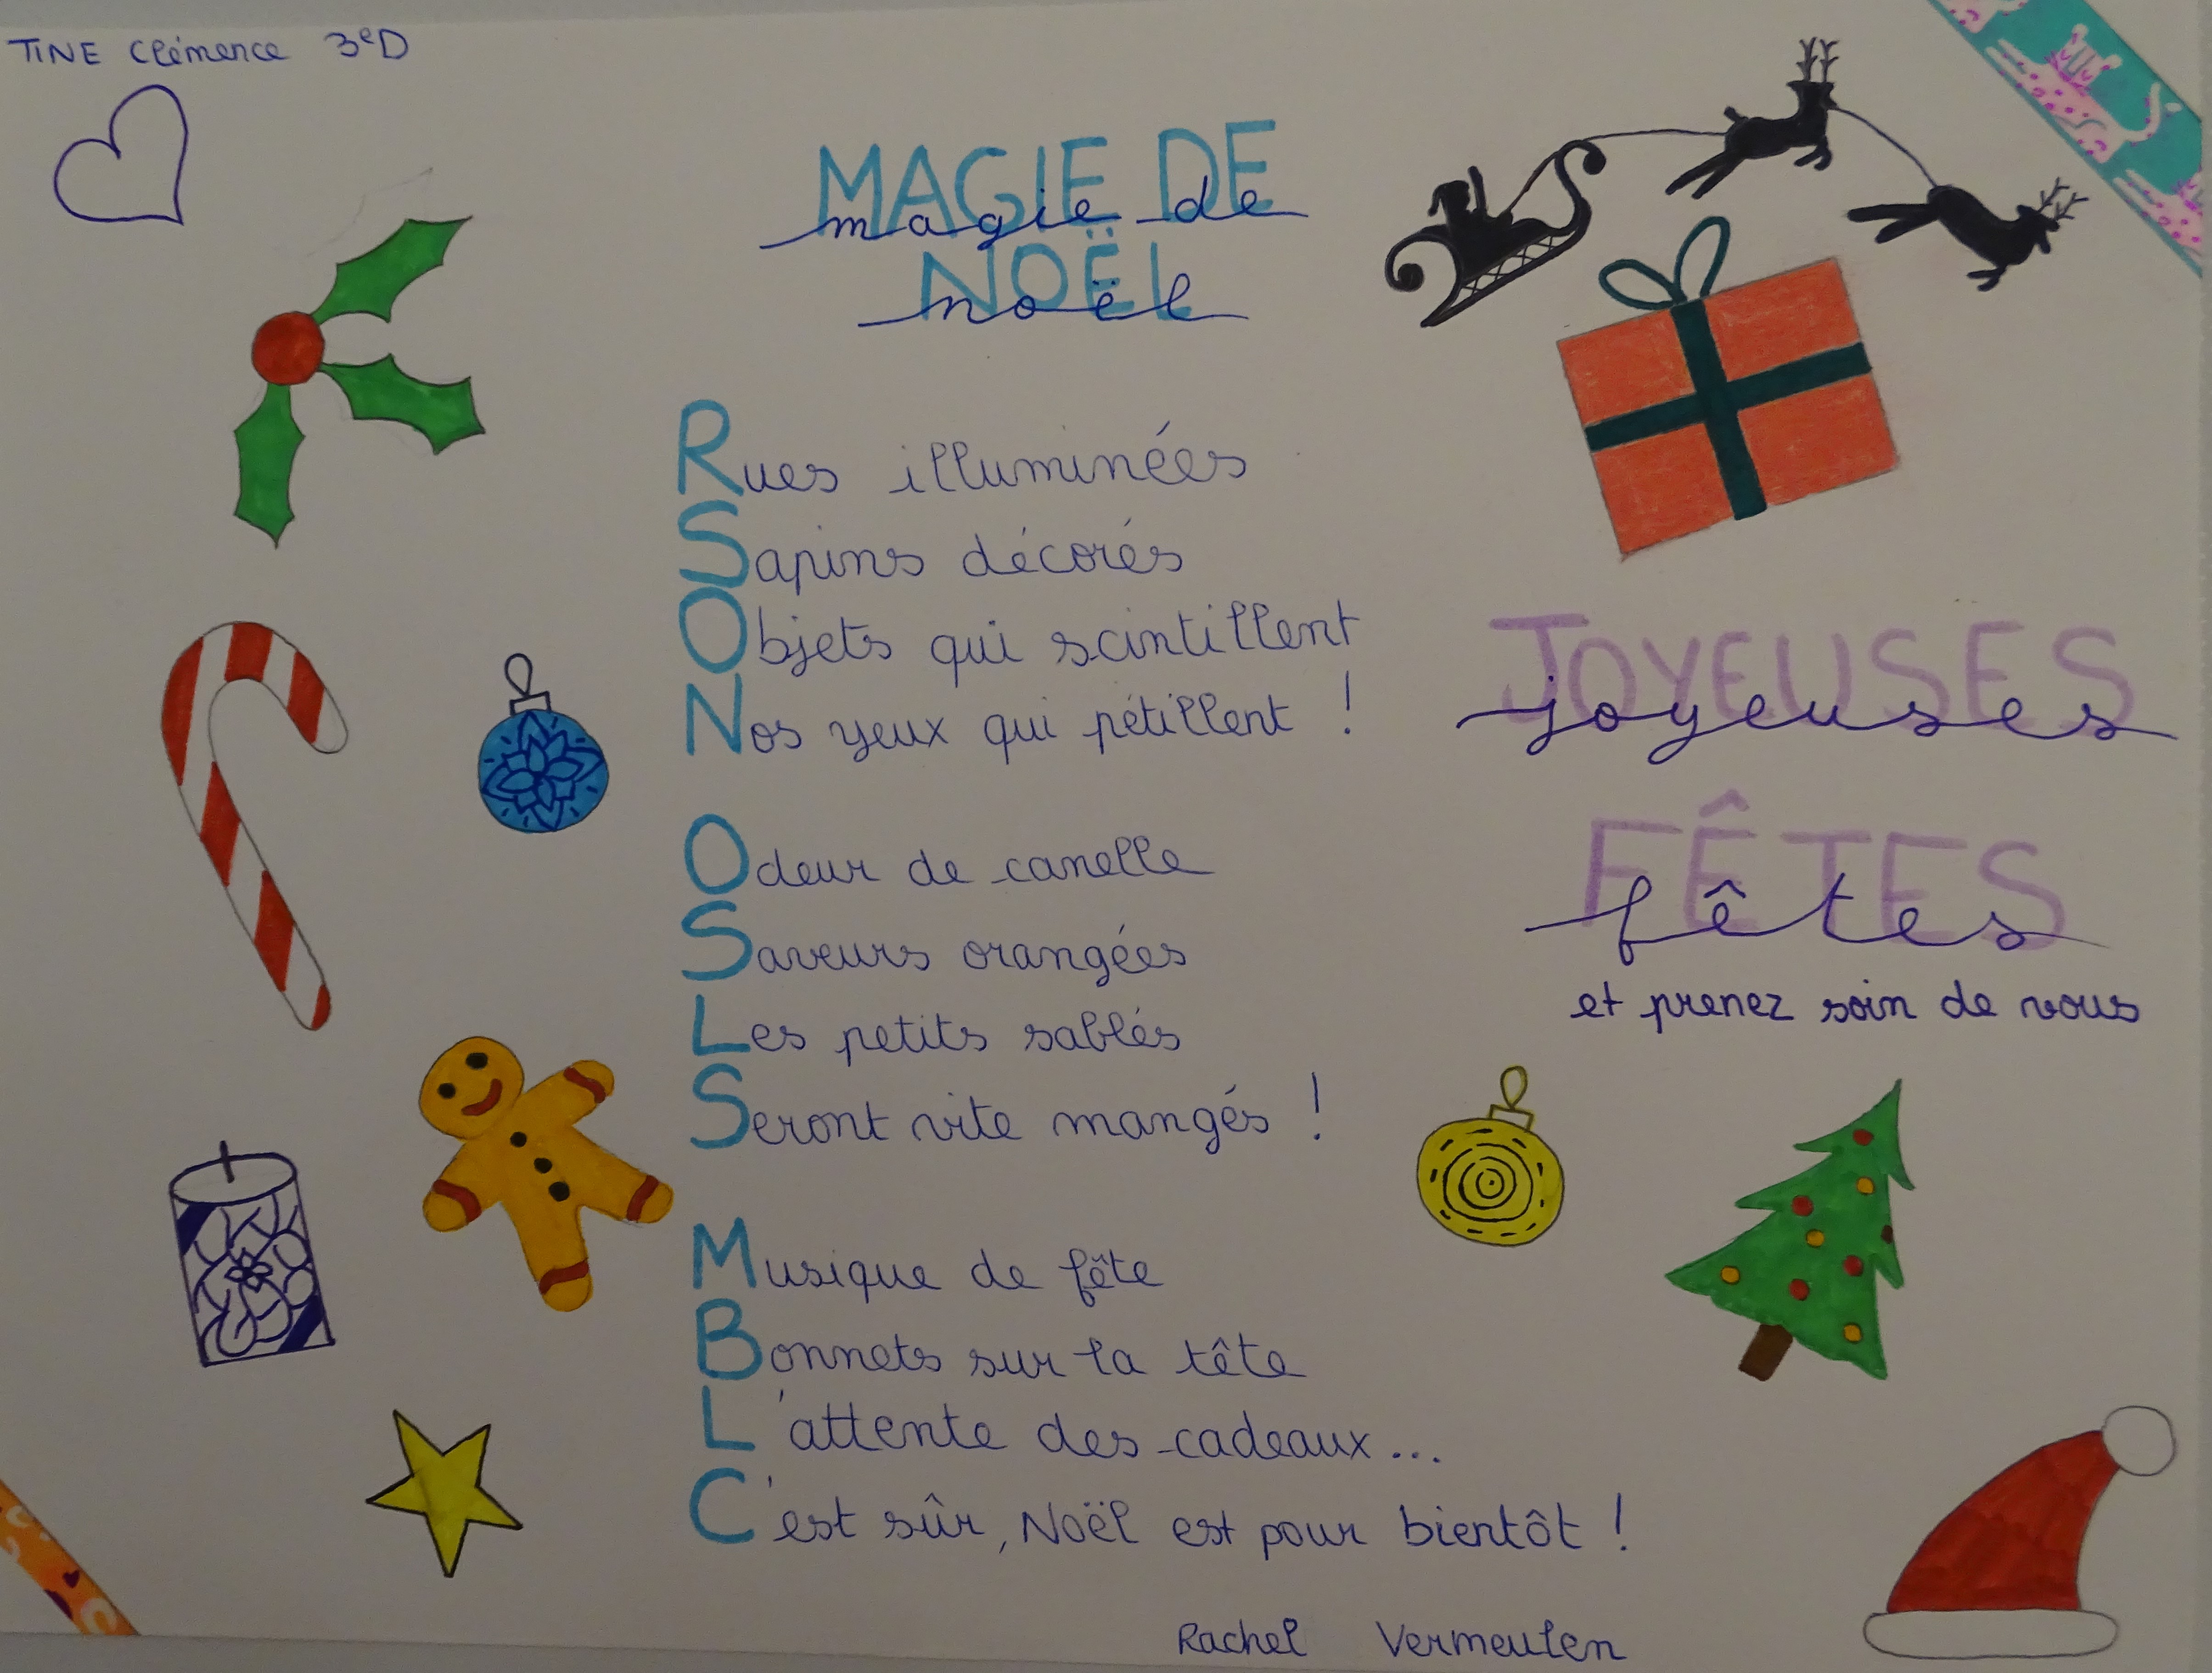 TINE Clémence 3eD
MAGIE DE
magie de
NOËL
noël
Rues illuminées
Sapins décorés
Objets qui scintillent
Nos yeux qui pétillent !
Odeur de canelle
Saveurs orangées
Les petits sablés
Seront vite mangés !
Musique de fête
Bonnets sur la tête
L'attente des cadeaux...
C'est sûr, Noël est pour bientôt !
Rachel Vermeulen
JOYEUSES
joyeuses
FÊTES
fêtes
et prenez soin de vous